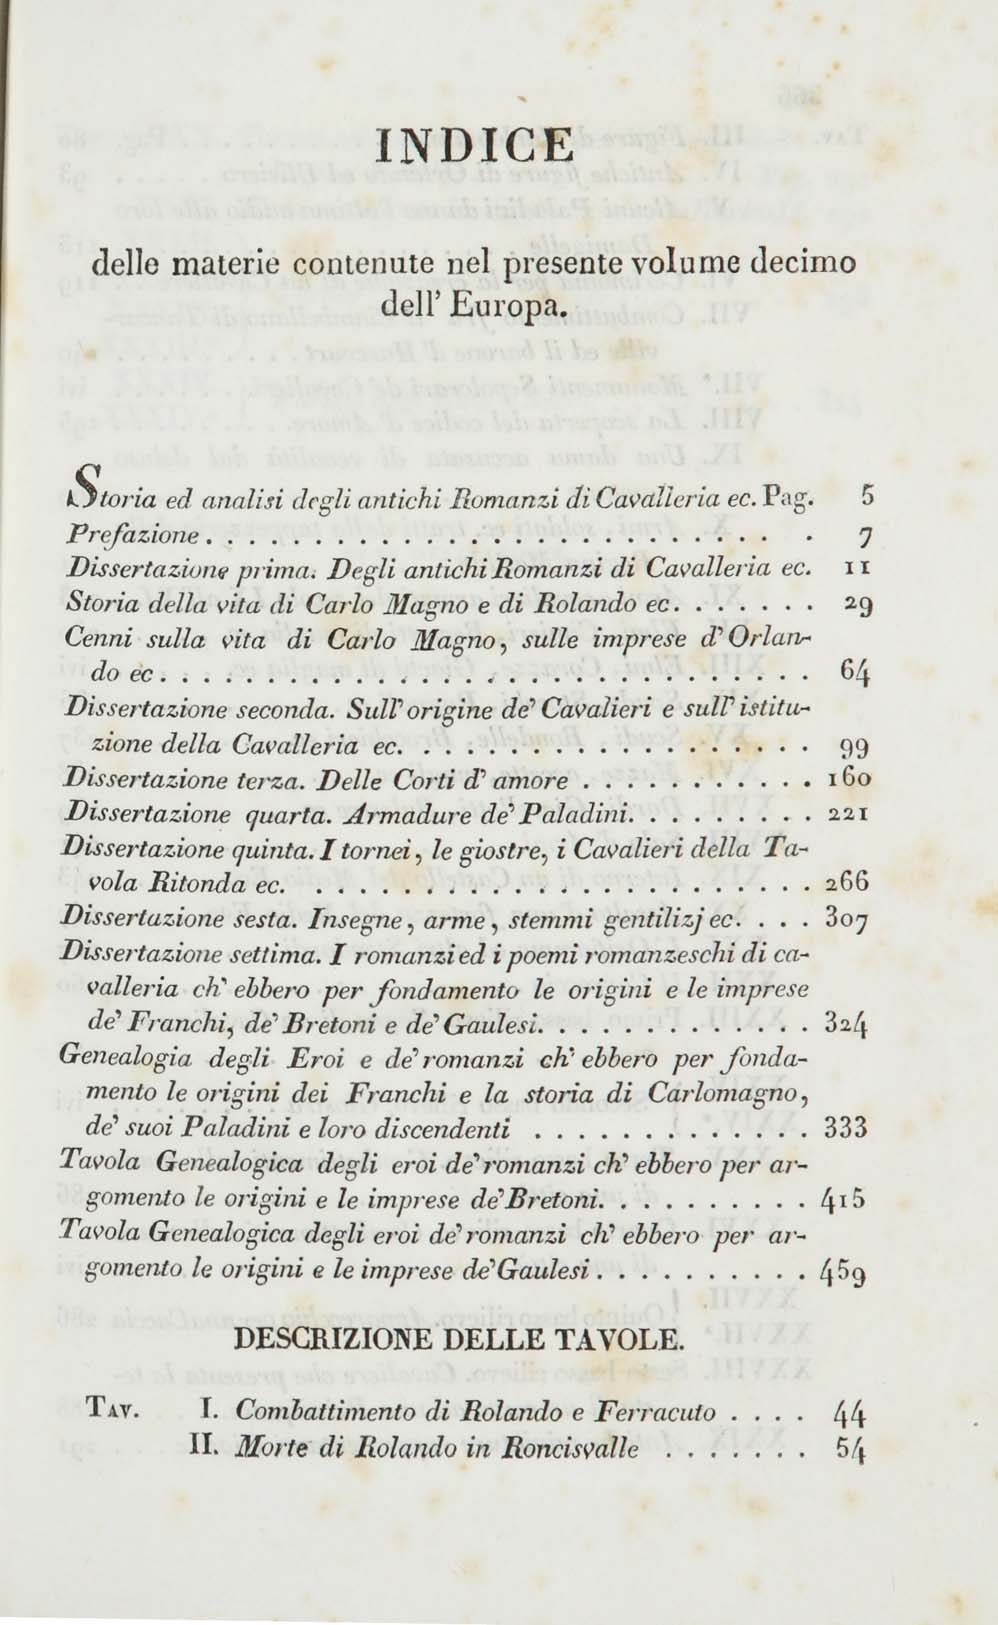 INDICE
delle materie contenute nel presente volume decimo
dell' Europa.
Storia ed analisi degli antichi Romanzi di Cavalleria ec. Pag. 5
Prefazione . . . . . . . . . . . . . . . . . . . . . . . . . . . 7
Dissertazione prima. Degli antichi Romanzi di Cavalleria ec. 11
Storia della vita di Carlo Magno e di Rolando ec. . . . . . . . 29
Cenni sulla vita di Carlo Magno, sulle imprese d' Orlan-
do ec . . . . . . . . . . . . . . . . . . . . . . . . . . . . . 64
Dissertazione seconda. Sull' origine de' Cavalieri e sull' istitu-
zione della Cavalleria ec. . . . . . . . . . . . . . . . . . . 99
Dissertazione terza. Delle Corti d' amore . . . . . . . . . . . 160
Dissertazione quarta. Armadure de' Paladini. . . . . . . . . . 221
Dissertazione quinta. I tornei, le giostre, i Cavalieri della Ta-
vola Ritonda ec. . . . . . . . . . . . . . . . . . . . . . . . 266
Dissertazione sesta. Insegne, arme, stemmi gentilizj ec. . . . . 307
Dissertazione settima. I romanzi ed i poemi romanzeschi di ca-
valleria ch' ebbero per fondamento le origini e le imprese
de' Franchi, de' Bretoni e de' Gaulesi. . . . . . . . . . . . . 324
Genealogia degli Eroi e de' romanzi ch' ebbero per fonda-
mento le origini dei Franchi e la storia di Carlomagno,
de' suoi Paladini e loro discendenti . . . . . . . . . . . . . 333
Tavola Genealogica degli eroi de' romanzi ch' ebbero per ar-
gomento le origini e le imprese de' Bretoni. . . . . . . . . . 415
Tavola Genealogica degli eroi de' romanzi ch' ebbero per ar-
gomento le origini e le imprese de' Gaulesi . . . . . . . . . . 459
DESCRIZIONE DELLE TAVOLE.
TAV. I. Combattimento di Rolando e Ferracuto . . . . 44
II. Morte di Rolando in Roncisvalle . . . . . . . 54